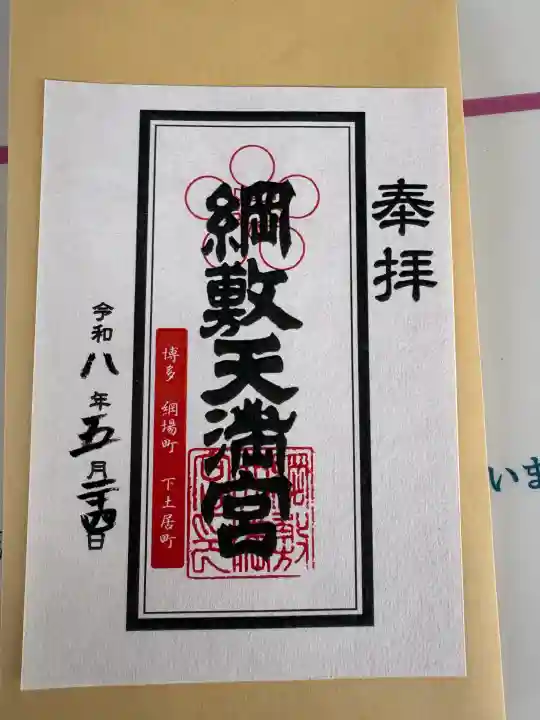 奉拝
綱敷天満宮
博多 綱場町 下土居町
令和八年五月二十四日
いま